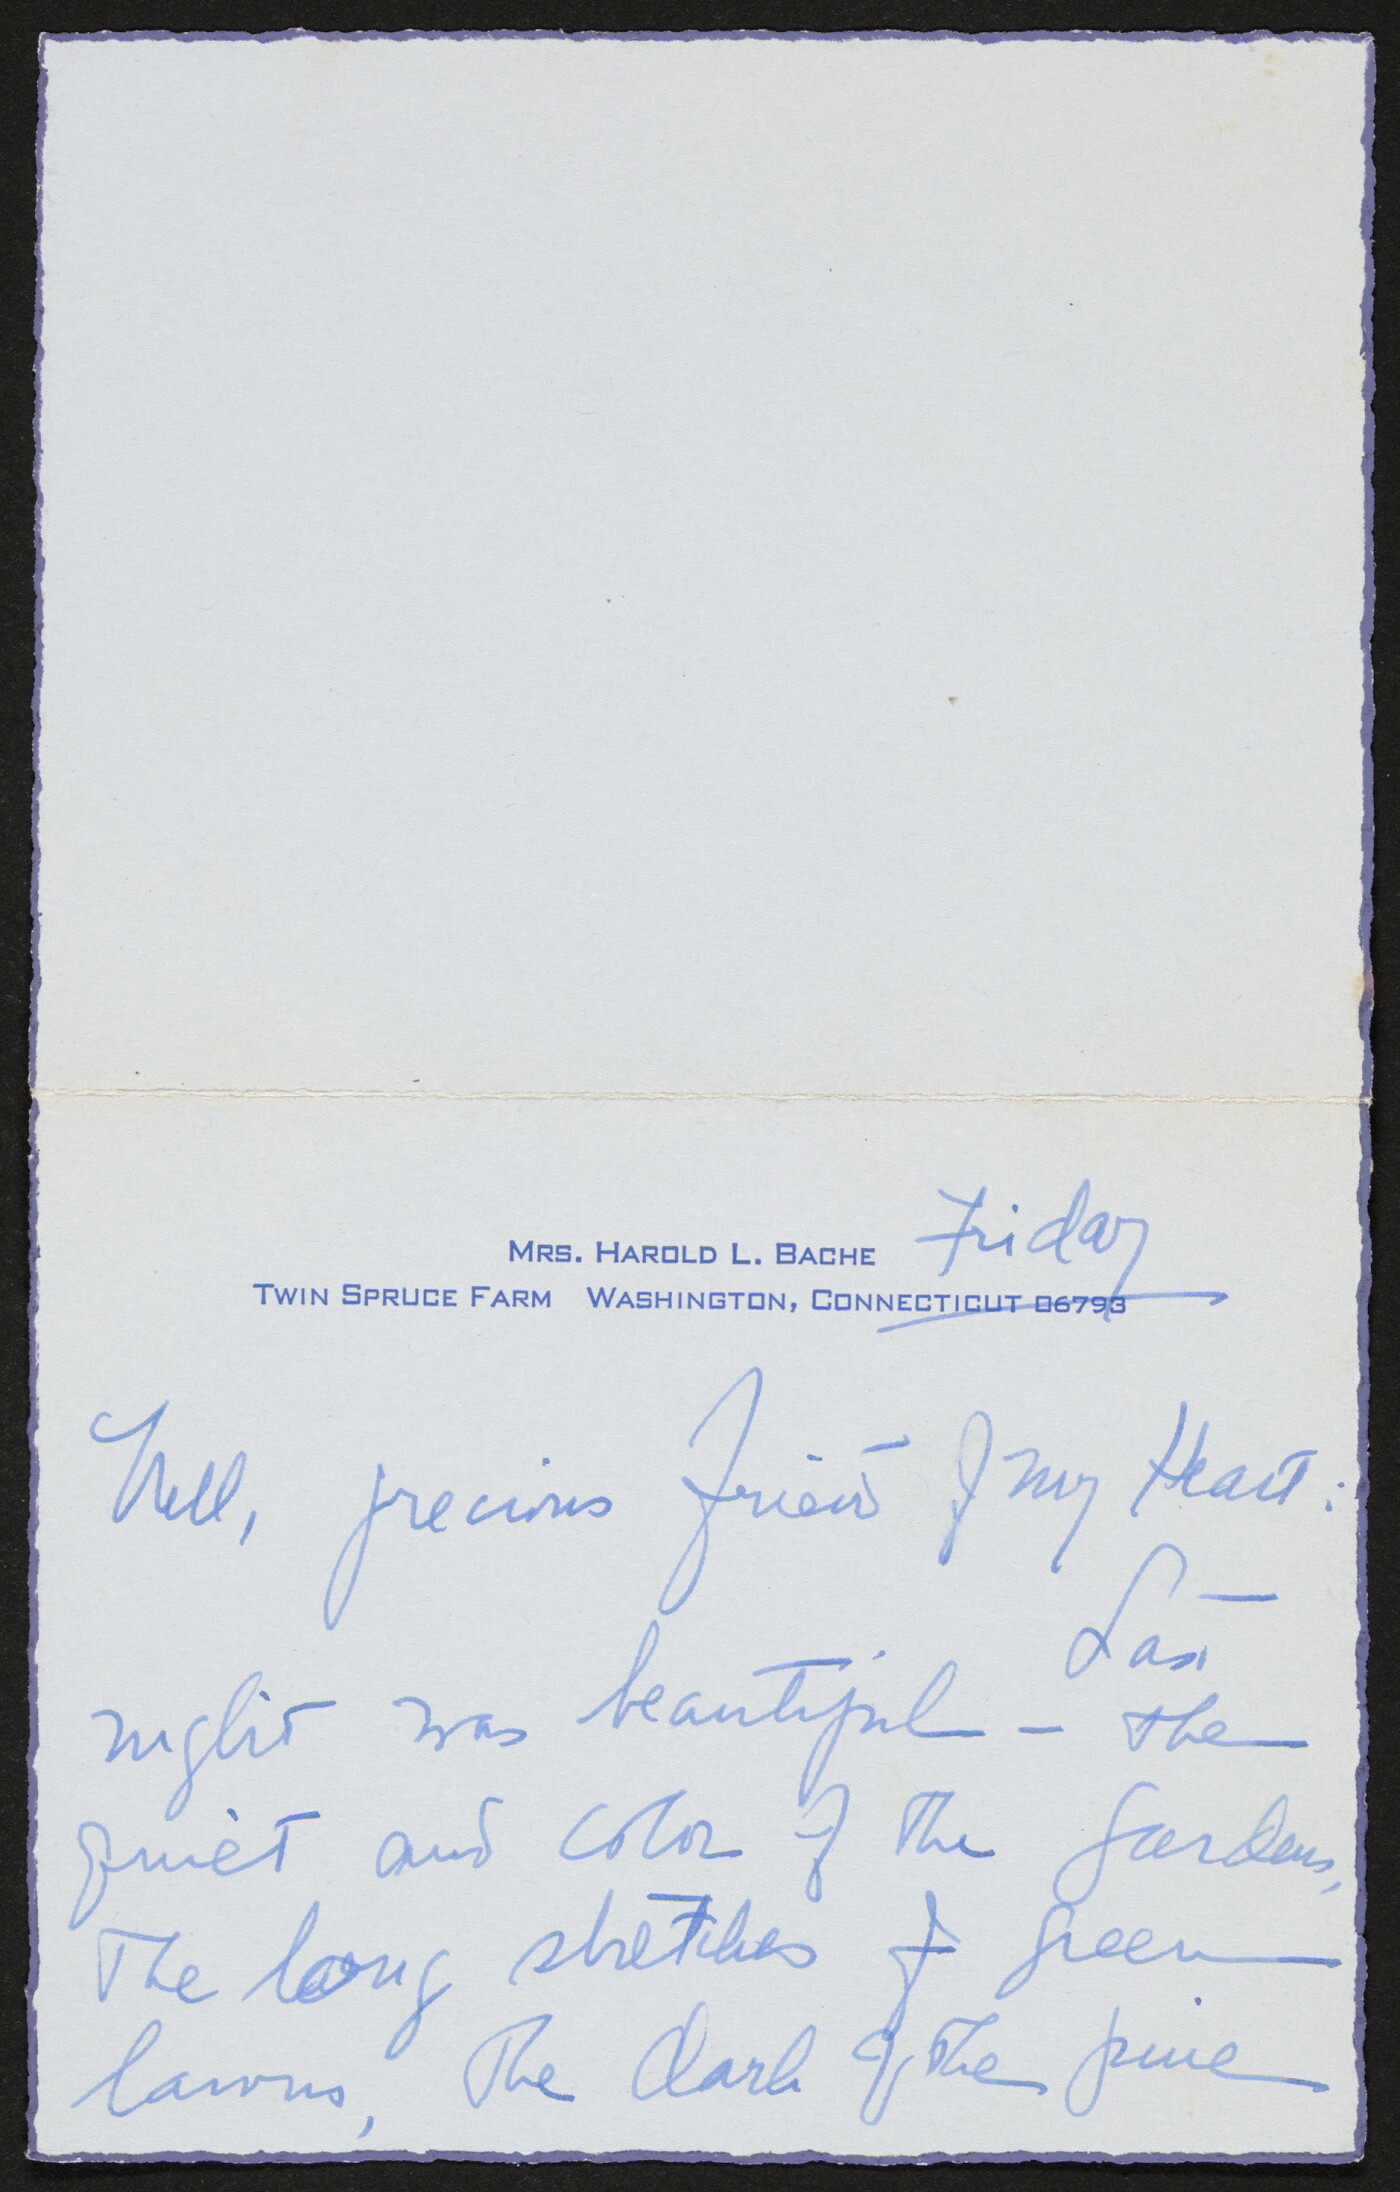 Friday
MRS. HAROLD L. BACHE
TWIN SPRUCE FARM WASHINGTON, CONNECTICUT 06793
Nell, precious friend of my Heart:
Last
night was beautiful - the
quiet and color of the gardens,
The long stretches of green
lawns, The dark of the pine